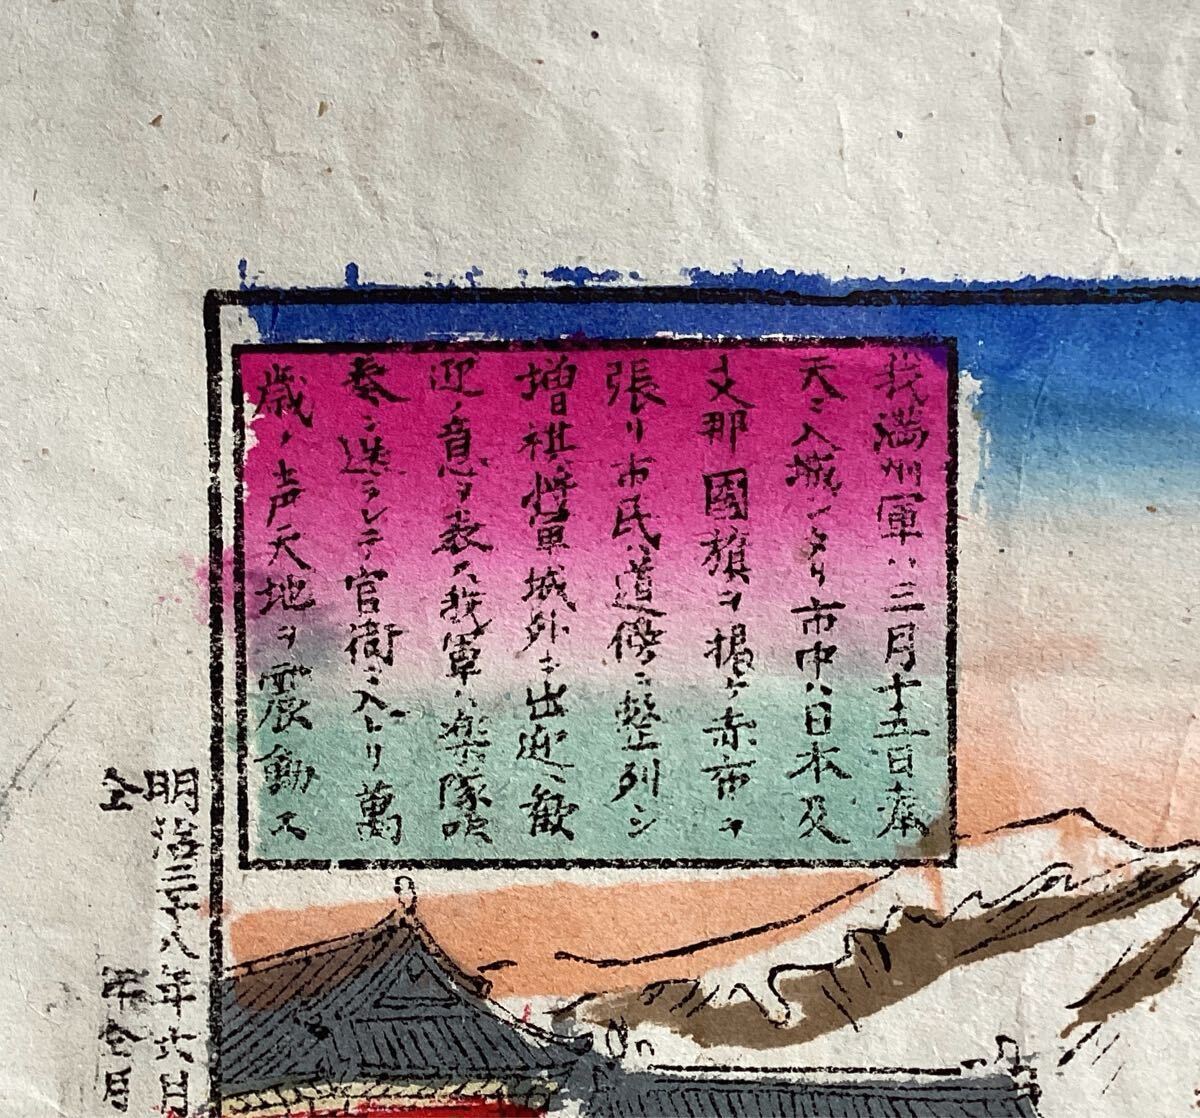 我満州軍ハ三月十五日奉
天ニ入城シタリ市中ハ日本及
支那國旗ヲ掲ケ赤布ヲ
張リ市民ハ道傍ニ整列シ
増祺将軍城外ニ出迎ヘ歓
迎ノ意ヲ表ス我軍ハ楽隊吹
奏ニ送ラレテ官衙ニ入レリ萬
歳ノ声天地ヲ震動ス
明治三十八年六月
仝 年仝月